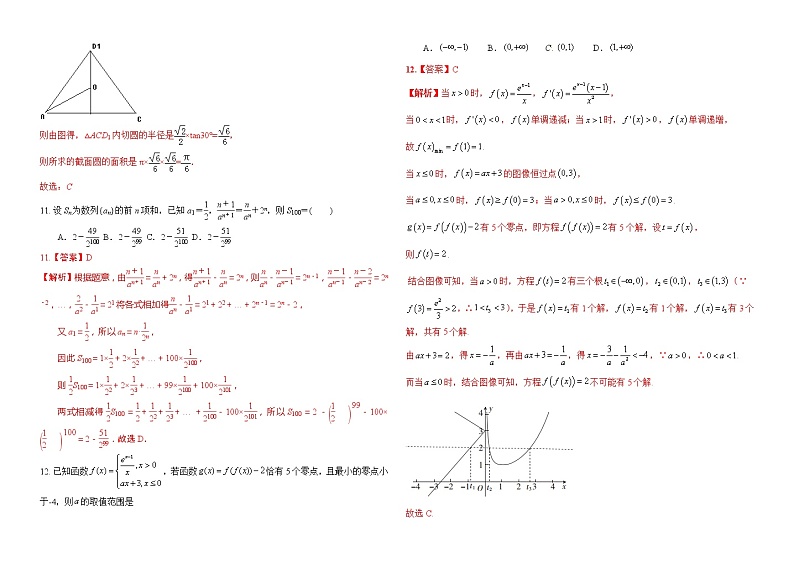 D1
O
A
C
则由图得，△ACD₁内切圆的半径是\frac{\sqrt{2}}{2}×tan30°=\frac{\sqrt{6}}{6}，
则所求的截面圆的面积是π×\frac{\sqrt{6}}{6}×\frac{\sqrt{6}}{6}=\frac{π}{6}.
故选：C
11. 设Sₙ为数列{aₙ}的前n项和，已知a₁=\frac{1}{2}，\frac{n+1}{a_{n+1}}=\frac{n}{a_n}+2ⁿ，则S₁₀₀=(　　)
A．2-\frac{49}{2^{100}} B．2-\frac{49}{2^{99}} C．2-\frac{51}{2^{100}} D．2-\frac{51}{2^{99}}
11.【答案】D
【解析】根据题意，由\frac{n+1}{a_{n+1}}=\frac{n}{a_n}+2ⁿ，得\frac{n+1}{a_{n+1}}-\frac{n}{a_n}=2ⁿ，则\frac{n}{a_n}-\frac{n-1}{a_{n-1}}=2^{n-1}，\frac{n-1}{a_{n-1}}-\frac{n-2}{a_{n-2}}=2ⁿ
⁻²，…，\frac{2}{a_2}-\frac{1}{a_1}=2¹将各式相加得\frac{n}{a_n}-\frac{1}{a_1}=2¹+2²+…+2^{n-1}=2ⁿ-2，
又a₁=\frac{1}{2}，所以aₙ=n·\frac{1}{2^n}，
因此S₁₀₀=1×\frac{1}{2}+2×\frac{1}{2^2}+…+100×\frac{1}{2^{100}}，
则\frac{1}{2}S₁₀₀=1×\frac{1}{2^2}+2×\frac{1}{2^3}+…+99×\frac{1}{2^{100}}+100×\frac{1}{2^{101}}，
两式相减得\frac{1}{2}S₁₀₀=\frac{1}{2}+\frac{1}{2^2}+\frac{1}{2^3}+…+\frac{1}{2^{100}}-100×\frac{1}{2^{101}}，所以S₁₀₀=2-(\frac{1}{2})⁹⁹-100×
(\frac{1}{2})¹⁰⁰=2-\frac{51}{2^{99}}.故选D.
12. 已知函数f(x)={\frac{e^{x-1}}{x},x>0 ax+3,x≤0，若函数g(x)=f(f(x))-2恰有5个零点，且最小的零点小
于-4，则a的取值范围是
A．(-∞,-1) B．(0,+∞) C．(0,1) D．(1,+∞)
12.【答案】C
【解析】当x>0时，f(x)=\frac{e^{x-1}}{x}，f'(x)=\frac{e^{x-1}(x-1)}{x^2}，
当0<x<1时，f'(x)<0，f(x)单调递减；当x>1时，f'(x)>0，f(x)单调递增，
故f(x)min=f(1)=1.
当x≤0时，f(x)=ax+3的图像恒过点(0,3)，
当a≤0,x≤0时，f(x)≥f(0)=3；当a>0,x≤0时，f(x)≤f(0)=3.
g(x)=f(f(x))-2有5个零点，即方程f(f(x))=2有5个解，设t=f(x)，
则f(t)=2.
结合图像可知，当a>0时，方程f(t)=2有三个根t₁∈(-∞,0)，t₂∈(0,1)，t₃∈(1,3)（∵
f(3)=\frac{e^2}{3}>2，∴1<t₃<3），于是f(x)=t₁有1个解，f(x)=t₂有1个解，f(x)=t₃有3个
解，共有5个解.
由ax+3=2，得x=-\frac{1}{a}，再由ax+3=-\frac{1}{a}，得x=-\frac{3}{a}-\frac{1}{a^2}<-4，∵a>0，∴0<a<1.
而当a≤0时，结合图像可知，方程f(f(x))=2不可能有5个解.
y
4
3
2
1
-4 -3 -2 -1 t₁ O t₂ 1 2 t₃ 3 4 x
故选C.